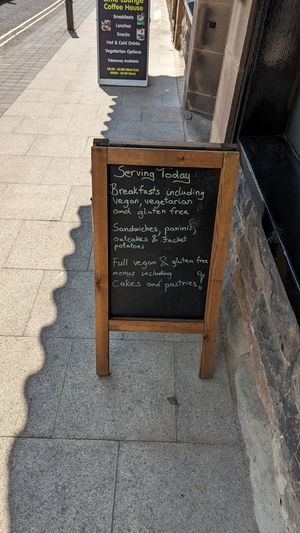 Lounge
Coffee House
Breakfasts
Lunches
Snacks
Hot & Cold Drinks
Vegetarian Options
Takeaway Available
Serving Today
Breakfasts including
Vegan, vegetarian
and gluten free
Sandwiches, paninis,
oatcakes & Jacket
potatoes
Full vegan & gluten free
menus including
Cakes and pastries!